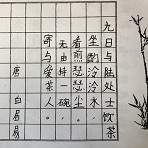 九日与陆处士饮茶
坐酌冷冷水，
看煎瑟瑟尘。
无由持一碗，
寄与爱茶人。
唐 白居易